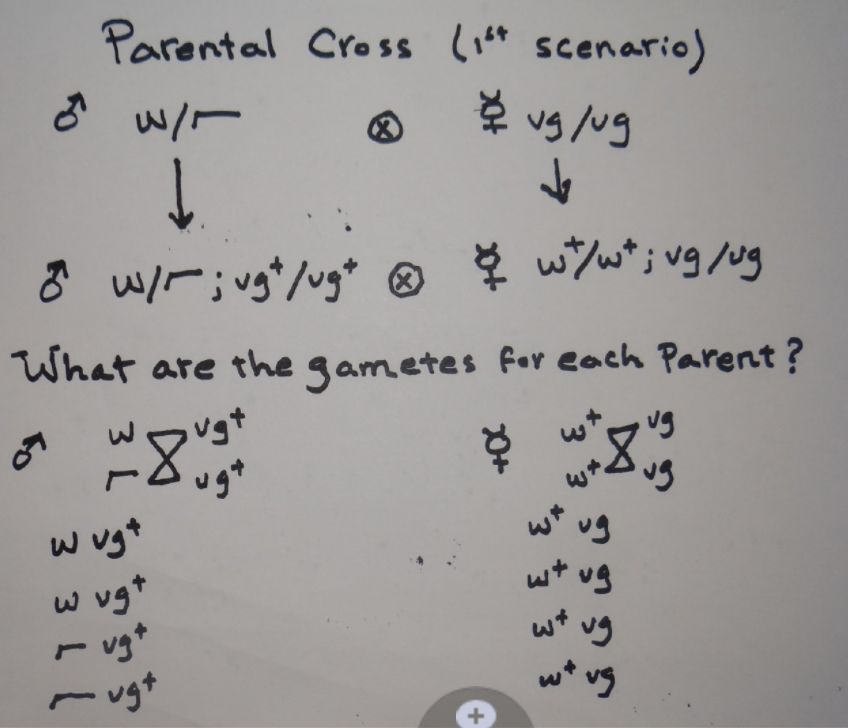 Parental Cross (1st scenario)
♂ w/⌐ ⊗ ☿ vg/vg
↓ ↓
♂ w/⌐; vg⁺/vg⁺ ⊗ ☿ w⁺/w⁺; vg/vg
What are the gametes for each Parent?
♂ w vg⁺ ☿ w⁺ vg
⌐ vg⁺ w⁺ vg
w vg⁺ w⁺ vg
w vg⁺ w⁺ vg
⌐ vg⁺ w⁺ vg
⌐ vg⁺ w⁺ vg